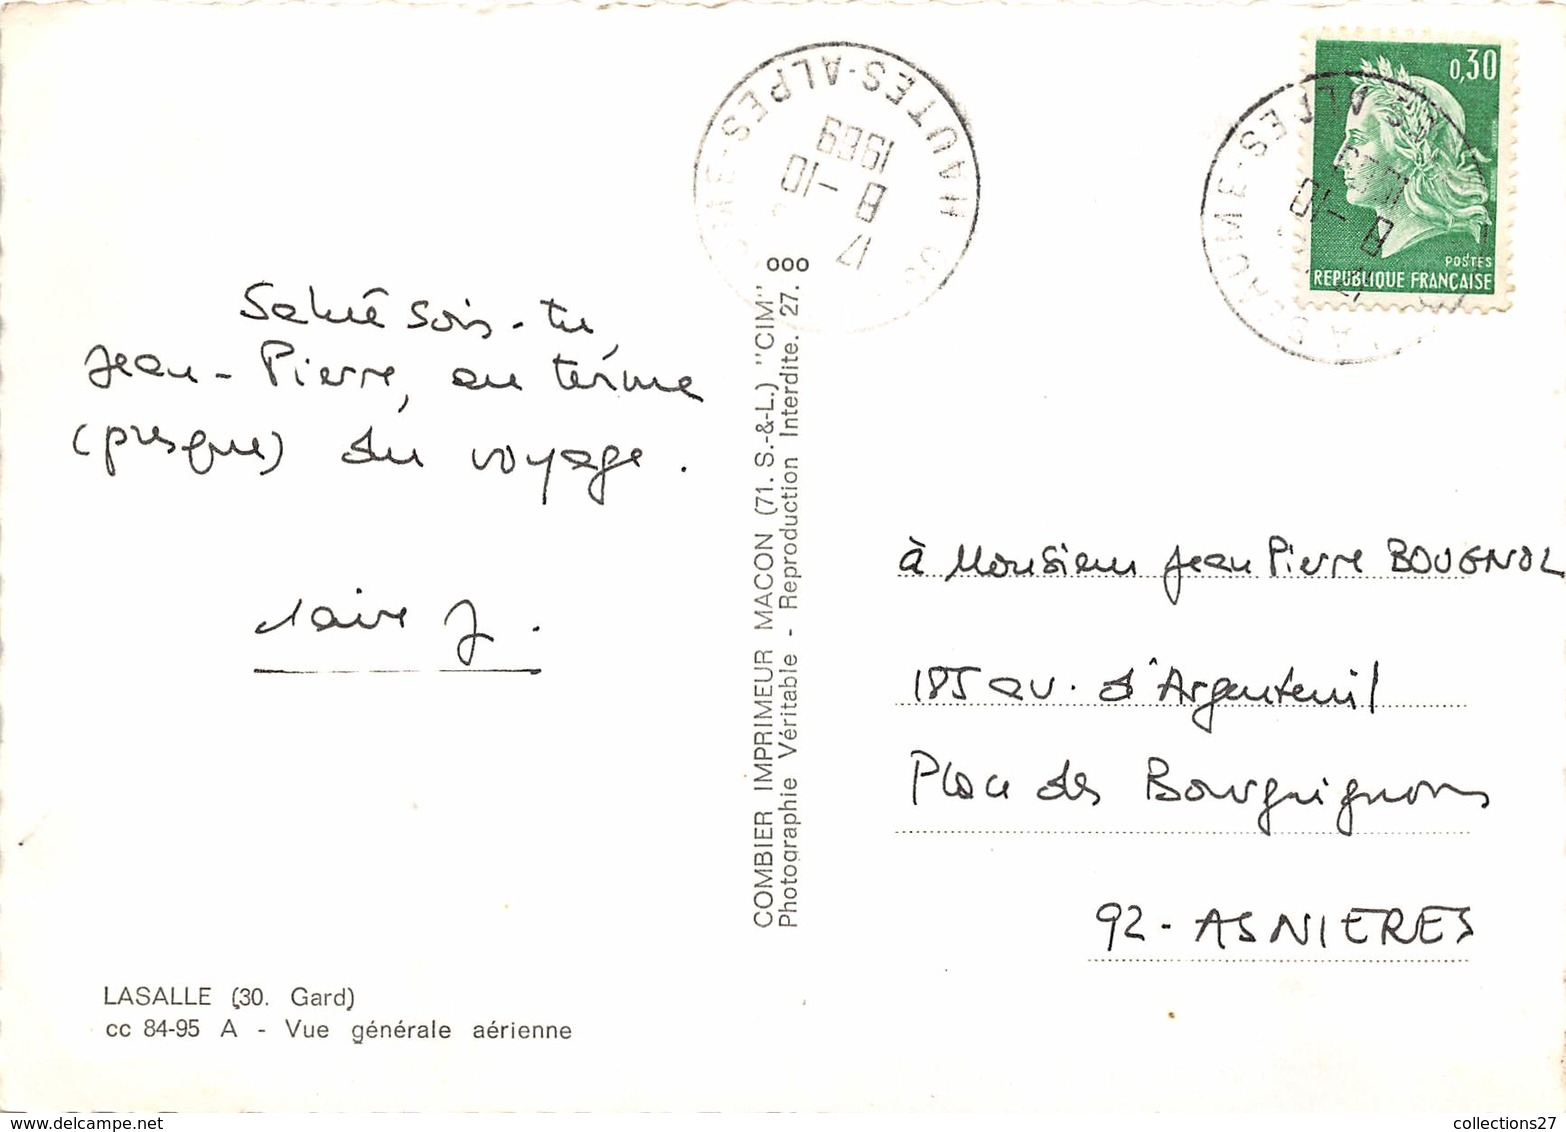 Salué sois-tu,
Jean-Pierre, au terme
(presque) du voyage.
Claire J.
LASALLE (30. Gard)
cc 84-95 A - Vue générale aérienne
COMBIER IMPRIMEUR MACON (71. S.-&-L.) "CIM"
Photographie Véritable - Reproduction Interdite. 27. ooo
HAUTES-ALPES
17
8 -10
1969
0,30
POSTES
REPUBLIQUE FRANÇAISE
à Monsieur Jean Pierre BOUGNOL
185 av. d'Argenteuil
Place des Bourguignons
92 - ASNIERES
www.delcampe.net
collections27